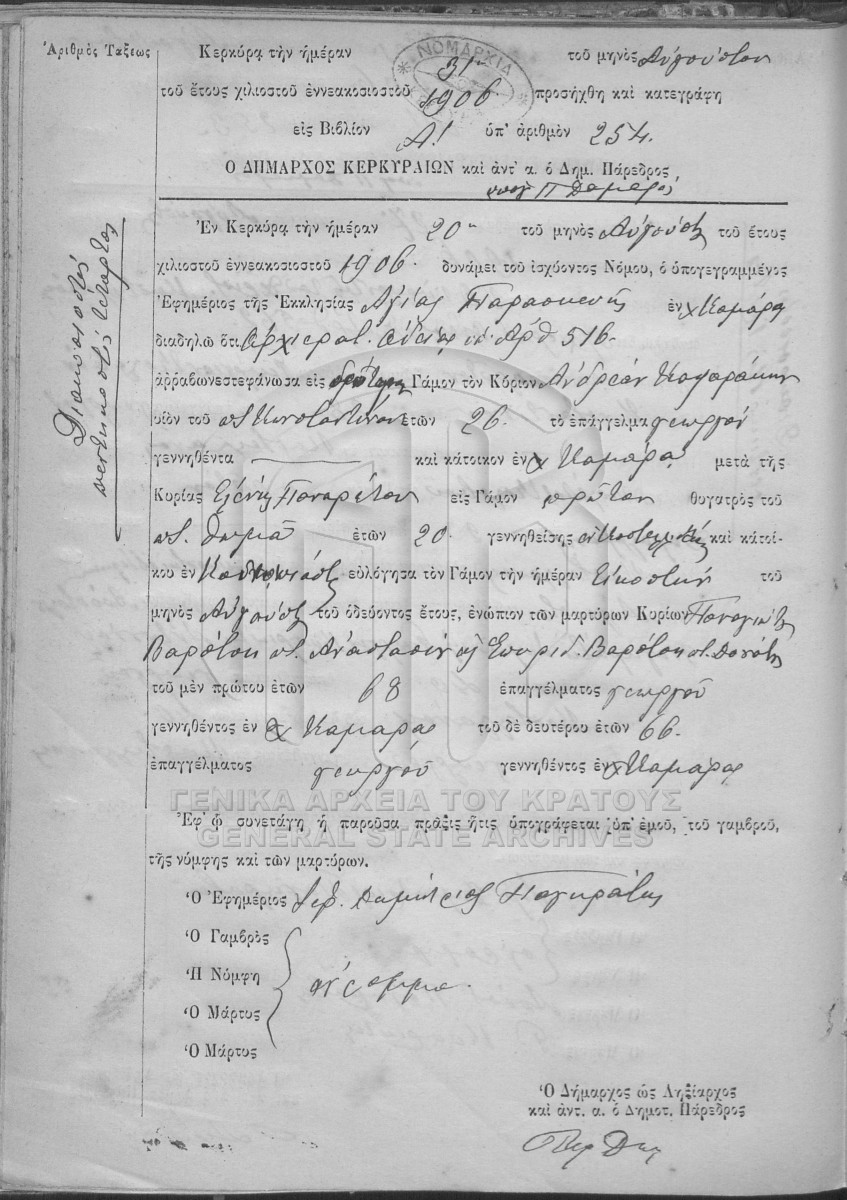 Ἀριθμὸς Τάξεως
Κερκύρᾳ τὴν ἡμέραν 31 τοῦ μηνὸς Αὐγούστου
ΝΟΜΑΡΧΙΑ
τοῦ ἔτους χιλιοστοῦ ἐννεακοσιοστοῦ 1906 προσήχθη καὶ κατεγράφη
εἰς Βιβλίον Α! ὑπ' ἀριθμὸν 254.
Ο ΔΗΜΑΡΧΟΣ ΚΕΡΚΥΡΑΙΩΝ καὶ ἀντ' α. ὁ Δημ. Πάρεδρος
Διακοσιοστὸς
πεντηκοστὸς τέταρτος
Ἐν Κερκύρᾳ τὴν ἡμέραν 20 τοῦ μηνὸς Αὐγούστου τοῦ ἔτους
χιλιοστοῦ ἐννεακοσιοστοῦ 1906. δυνάμει τοῦ ἰσχύοντος Νόμου, ὁ ὑπογεγραμμένος
Ἐφημέριος τῆς Ἐκκλησίας Ἁγίας Παρασκευῆς ἐν χ Καμάρᾳ
διαδηλῶ ὅτι Ἀρχιερατ. Ἀδείᾳ ὑπ. Ἀρθ 516.
ἀῤῥαβωνεστεφάνωσα εἰς πρῶτον Γάμον τὸν Κύριον Ἀνδρέαν
υἱὸν τοῦ ποτ. Κωνσταντίνου ἐτῶν 26. τὸ ἐπάγγελμα γεωργοῦ
γεννηθέντα καὶ κάτοικον ἐν χ Καμάρᾳ μετὰ τῆς
Κυρίας Ἑλένης Παναρέτου εἰς Γάμον πρῶτον θυγατρὸς τοῦ
ποτ. Θωμᾶ ἐτῶν 20. γεννηθείσης ἐν καὶ κάτοι-
κου ἐν εὐλόγησα τὸν Γάμον τὴν ἡμέραν Εἰκοστὴν τοῦ
μηνὸς Αὐγούστου τοῦ ὁδεύοντος ἔτους, ἐνώπιον τῶν μαρτύρων Κυρίων Παναγιώτου
Βαρότου ποτ. Ἀναστασίου καὶ Σπυρίδ. Βαρότου ποτ.
τοῦ μὲν πρώτου ἐτῶν 68 ἐπαγγέλματος γεωργοῦ
γεννηθέντος ἐν χ Καμάρᾳ τοῦ δὲ δευτέρου ἐτῶν 66.
ἐπαγγέλματος γεωργοῦ γεννηθέντος ἐν χ Καμάρᾳ
ΓΕΝΙΚΑ ΑΡΧΕΙΑ ΤΟΥ ΚΡΑΤΟΥΣ
Ἐφ' ᾧ συνετάγη ἡ παροῦσα πρᾶξις ἥτις ὑπογράφεται ὑπ' ἐμοῦ, τοῦ γαμβροῦ,
GENERAL STATE ARCHIVES
τῆς νύμφης καὶ τῶν μαρτύρων.
Ὁ Ἐφημέριος Ἱερ. Δημήτριος
Ὁ Γαμβρὸς
Ἡ Νύμφη
ἀγράμματοι.
Ὁ Μάρτυς
Ὁ Μάρτυς
Ὁ Δήμαρχος ὡς Ληξίαρχος
καὶ ἀντ. α. ὁ Δημοτ. Πάρεδρος